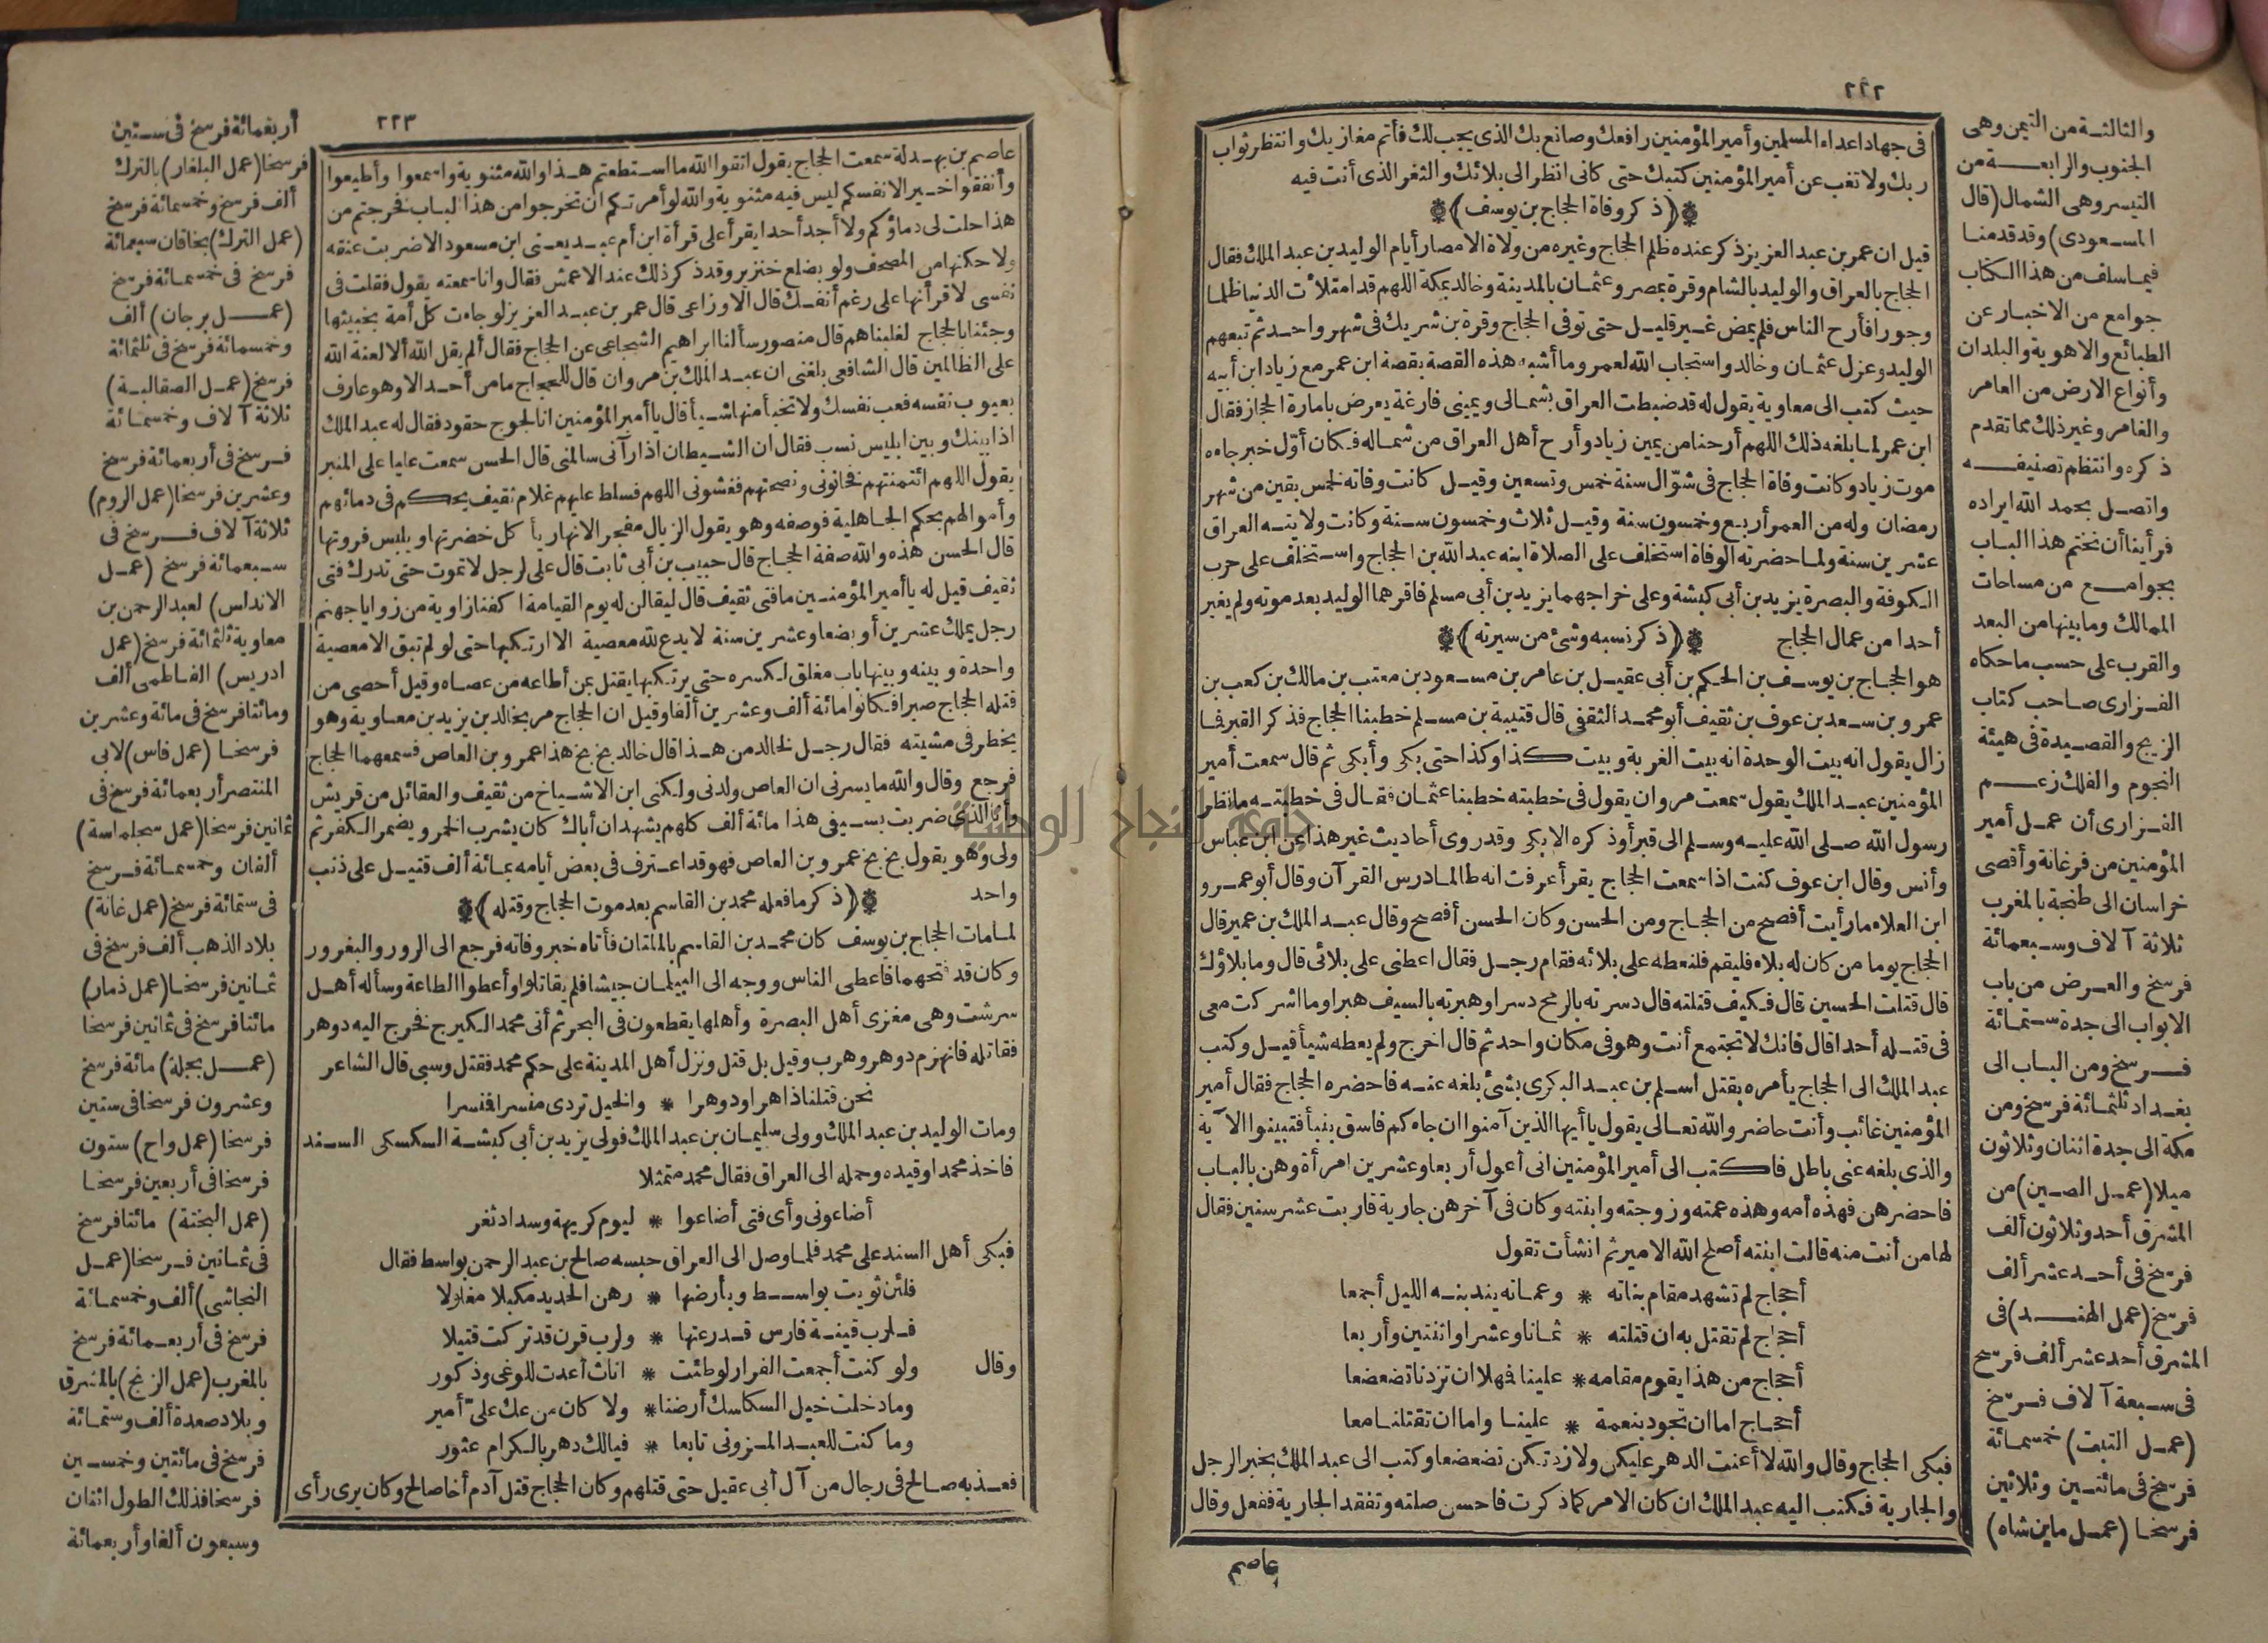 ٢٢٢
فى جهاد اعداء المسلمين وأمير المؤمنين رافعك وصانع بك الذى يجب لك فأتم مغازيك وانتظر ثواب
ربك ولا تغب عن أمير المؤمنين كتبك حتى كانى انظر الى بلائك والثغر الذى أنت فيه
﴿ذكر وفاة الحجاج بن يوسف﴾
قيل ان عمر بن عبد العزيز ذكر عنده ظلم الحجاج وغيره من ولاة الامصار أيام الوليد بن عبد الملك فقال
الحجاج بالعراق والوليد بالشام وقرة بمصر وعثمان بالمدينة وخالد بمكة اللهم قد امتلأت الدنيا ظلما
وجورا فأرح الناس فلم يمض غير قليل حتى توفى الحجاج وقرة بن شريك فى شهر واحد ثم تبعهم
الوليد وعزل عثمان وخالد واستجاب الله لعمر وما أشبه هذه القصة بقصة ابن عمر مع زياد ابن أبيه
حيث كتب الى معاوية يقول له قد ضبطت العراق بشمالى ويمينى فارغة يعرض بامارة الحجاز فقال
ابن عمر لما بلغه ذلك اللهم أرحنا من يمين زياد وأرح أهل العراق من شماله فكان أوّل خبر جاءه
موت زياد وكانت وفاة الحجاج فى شوّال سنة خمس وتسعين وقيل كانت وفاته لخمس بقين من شهر
رمضان وله من العمر أربع وخمسون سنة وقيل ثلاث وخمسون سنة وكانت ولايته العراق
عشرين سنة ولما حضرته الوفاة استخلف على الصلاة ابنه عبد الله بن الحجاج واستخلف على حرب
الكوفة والبصرة يزيد بن أبى كبشة وعلى خراجهما يزيد بن أبى مسلم فاقرهما الوليد بعد موته ولم يغير
أحدا من عمال الحجاج ﴿ذكر نسبه وشئ من سيرته﴾
هو الحجاج بن يوسف بن الحكم بن أبى عقيل بن عامر بن مسعود بن معتب بن مالك بن كعب بن
عمرو بن سعد بن عوف بن ثقيف أبو محمد الثقفى قال قتيبة بن مسلم خطبنا الحجاج فذكر القبر فما
زال يقول انه بيت الوحدة انه بيت الغربة وبيت كذا وكذا حتى بكى وأبكى ثم قال سمعت أمير
المؤمنين عبد الملك يقول سمعت مروان يقول فى خطبته خطبنا عثمان فقال فى خطبته ما نظر
رسول الله صلى الله عليه وسلم الى قبر أو ذكره الا بكى وقد روى أحاديث غير هذا عن ابن عباس
وأنس وقال ابن عوف كنت اذا سمعت الحجاج يقرأ عرفت انه طالما درس القرآن وقال أبو عمرو
ابن العلاء ما رأيت أفصح من الحجاج ومن الحسن وكان الحسن أفصح وقال عبد الملك بن عمير قال
الحجاج يوما من كان له بلاء فليقم فلنعطه على بلائه فقام رجل فقال اعطنى على بلائى قال وما بلاؤك
قال قتلت الحسين قال فكيف قتلته قال دسرته بالرمح دسرا وهبرته بالسيف هبرا وما اشركت معى
فى قتله أحدا قال فانك لا تجتمع أنت وهو فى مكان واحد ثم قال اخرج ولم يعطه شيأ قيل وكتب
عبد الملك الى الحجاج يأمره بقتل اسلم بن عبد البكرى بشئ بلغه عنه فاحضره الحجاج فقال أمير
المؤمنين غائب وأنت حاضر والله تعالى يقول يا أيها الذين آمنوا ان جاءكم فاسق بنبأ فتبينوا الآية
والذى بلغه عنى باطل فاكتب الى أمير المؤمنين انى أعول أربعا وعشرين امرأة وهن بالباب
فاحضرهن فهذه أمه وهذه عمته وزوجته وابنته وكان فى آخرهن جارية قاربت عشر سنين فقال
لها من أنت منه قالت ابنته أصلح الله الامير ثم انشأت تقول
أحجاج لم تشهد مقام بناته * وعماته يندبنه الليل أجمعا
أحجاج لم تقتل به ان قتلته * ثمانا وعشرا واثنتين وأربعا
أحجاج من هذا يقوم مقامه * علينا فهلا ان تزدنا تضعضعا
أحجاج اما ان تجود بنعمة * علينا واما ان تقتلنا معا
فبكى الحجاج وقال والله لا أعنت الدهر عليكن ولا زدتكن تضعضعا وكتب الى عبد الملك بخبر الرجل
والجارية فكتب اليه عبد الملك ان كان الامر كما ذكرت فاحسن صلته وتفقد الجارية ففعل وقال
عاصم
والثالثة من التيمن وهى
الجنوب والرابعة من
التيسر وهى الشمال (قال
المسعودى) وقد قدمنا
فيما سلف من هذا الكتاب
جوامع من الاخبار عن
الطبائع والاهوية والبلدان
وأنواع الارض من العامر
والغامر وغير ذلك مما تقدم
ذكره وانتظم تصنيفه
واتصل بحمد الله ايراده
فرأينا أن نختم هذا الباب
بجوامع من مساحات
الممالك وما بينها من البعد
والقرب على حسب ما حكاه
الفزارى صاحب كتاب
الزيج والقصيدة فى هيئة
النجوم والفلك زعم
الفزارى أن عمل أمير
المؤمنين من فرغانة وأقصى
خراسان الى طنجة بالمغرب
ثلاثة آلاف وسبعمائة
فرسخ والعرض من باب
الابواب الى جدة ستمائة
فرسخ ومن الباب الى
بغداد ثلثمائة فرسخ ومن
مكة الى جدة اثنان وثلاثون
ميلا (عمل الصين) من
المشرق أحد وثلاثون ألف
فرسخ فى أحد عشر ألف
فرسخ (عمل الهند) فى
المشرق أحد عشر ألف فرسخ
فى سبعة آلاف فرسخ
(عمل التبت) خمسمائة
فرسخ فى مائتين وثلاثين
فرسخا (عمل ماين شاه)
٢٢٣
عاصم بن بهدلة سمعت الحجاج يقول اتقوا الله ما استطعتم هذا والله مثنوية واسمعوا وأطيعوا
وأنفقوا خيرا لانفسكم ليس فيه مثنوية والله لو أمرتكم ان تخرجوا من هذا الباب فخرجتم من
هذا حلت لى دماؤكم ولا أجد أحدا يقرأ على قرأة ابن أم عبد يعنى ابن مسعود الا ضربت عنقه
ولا حكنها من المصحف ولو بضلع خنزير وقد ذكر ذلك عند الاعمش فقال وانا سمعته يقول فقلت فى
نفسى لا قرأنها على رغم أنفك قال الاوزاعى قال عمر بن عبد العزيز لو جاءت كل أمة بخبيثها
وجئنا بالحجاج لغلبناهم قال منصور سألنا ابراهيم النخعى عن الحجاج فقال ألم يقل الله ألا لعنة الله
على الظالمين قال الشافعى بلغنى ان عبد الملك بن مروان قال للحجاج ما من أحد الا وهو عارف
بعيوب نفسه فعب نفسك ولا تخبأ منها شيأ قال يا أمير المؤمنين انا لجوج حقود فقال له عبد الملك
اذا بينك وبين ابليس نسب فقال ان الشيطان اذا رآنى سالمنى قال الحسن سمعت عليا على المنبر
يقول اللهم ائتمنتهم فخانونى ونصحتهم فغشونى اللهم فسلط عليهم غلام ثقيف يحكم فى دمائهم
وأموالهم بحكم الجاهلية فوصفه وهو يقول الزيال مفجر الانهار يأكل خضرتها ويلبس فروتها
قال الحسن هذه والله صفة الحجاج قال حبيب بن أبى ثابت قال على لرجل لا تموت حتى تدرك فتى
ثقيف قيل له يا أمير المؤمنين ما فتى ثقيف قال ليقالن له يوم القيامة اكفنا زاوية من زوايا جهنم
رجل يملك عشرين أو بضعا وعشرين سنة لا يدع لله معصية الا ارتكبها حتى لو لم تبق الا معصية
واحدة وبينه وبينها باب مغلق لكسره حتى يرتكبها يقتل بمن أطاعه من عصاه وقيل أحصى من
قتله الحجاج صبرا فكانوا مائة ألف وعشرين ألفا وقيل ان الحجاج مر بخالد بن يزيد بن معاوية وهو
يخطر فى مشيته فقال رجل لخالد من هذا قال خالد بخ بخ هذا عمرو بن العاص فسمعهما الحجاج
فرجع وقال والله ما يسرنى ان العاص ولدنى ولكنى ابن الاشياخ من ثقيف والعقائل من قريش
وأنا الذى ضربت بسيفى هذا مائة ألف كلهم يشهد ان أباك كان يشرب الخمر ويضمر الكفر ثم
ولى وهو يقول بخ بخ عمرو بن العاص فهو قد اعترف فى بعض أيامه بمائة ألف قتيل على ذنب
واحد ﴿ذكر ما فعله محمد بن القاسم بعد موت الحجاج وقتله﴾
لما مات الحجاج بن يوسف كان محمد بن القاسم بالملتان فأتاه خبر وفاته فرجع الى الرور والبغرور
وكان قد فتحهما فاعطى الناس ووجه الى البيلمان جيشا فلم يقاتلوا وأعطوا الطاعة وسأله أهل
سرشت وهى مغزى أهل البصرة وأهلها يقطعون فى البحر ثم أتى محمد الكيرج فخرج اليه دوهر
فقاتله فانهزم دوهر وهرب وقيل بل قتل ونزل أهل المدينة على حكم محمد فقتل وسبى قال الشاعر
نحن قتلنا ذاهرا ودوهرا * والخيل تردى منسرا فنسرا
ومات الوليد بن عبد الملك وولى سليمان بن عبد الملك فولى يزيد بن أبى كبشة السكسكى السند
فاخذ محمدا وقيده وحمله الى العراق فقال محمد متمثلا
أضاعونى وأى فتى أضاعوا * ليوم كريهة وسداد ثغر
فبكى أهل السند على محمد فلما وصل الى العراق حبسه صالح بن عبد الرحمن بواسط فقال
فلئن ثويت بواسط وبأرضها * رهن الحديد مكبلا مغلولا
فلرب قينة فارس قد رعتها * ولرب قرن قد تركت قتيلا
وقال ولو كنت أجمعت الفرار لوطئت * اناث أعدت للوغى وذكور
وما دخلت خيل السكاسك أرضنا * ولا كان من عك علىّ أمير
وما كنت للعبد المزونى تابعا * فيا لك دهر بالكرام عثور
فعذبه صالح فى رجال من آل أبى عقيل حتى قتلهم وكان الحجاج قتل آدم أخا صالح وكان يرى رأى
أربعمائة فرسخ فى ستين
فرسخا (عمل البلغار) بالترك
ألف فرسخ وخمسمائة فرسخ
(عمل الترك) بخاقان سبعمائة
فرسخ فى خمسمائة فرسخ
(عمل برجان) ألف
وخمسمائة فرسخ فى ثلثمائة
فرسخ (عمل الصقالبة)
ثلاثة آلاف وخمسمائة
فرسخ فى أربعمائة فرسخ
وعشرين فرسخا (عمل الروم)
ثلاثة آلاف فرسخ فى
سبعمائة فرسخ (عمل
الاندلس) لعبد الرحمن بن
معاوية ثلثمائة فرسخ (عمل
ادريس) الفاطمى ألف
ومائتا فرسخ فى مائة وعشرين
فرسخا (عمل فاس) لابى
المنتصر أربعمائة فرسخ فى
ثمانين فرسخا (عمل سجلماسة)
ألفان وخمسمائة فرسخ
فى ستمائة فرسخ (عمل غانة)
بلاد الذهب ألف فرسخ فى
ثمانين فرسخا (عمل ذمار)
مائتا فرسخ فى ثمانين فرسخا
(عمل بجلة) مائة فرسخ
وعشرون فرسخا فى ستين
فرسخا (عمل واح) ستون
فرسخا فى أربعين فرسخا
(عمل البختة) مائتا فرسخ
فى ثمانين فرسخا (عمل
النجاشى) ألف وخمسمائة
فرسخ فى أربعمائة فرسخ
بالمغرب (عمل الزنج) بالمشرق
وبلاد صعدة ألف وستمائة
فرسخ فى مائتين وخمسين
فرسخا فذلك الطول اثنان
وسبعون ألفا وأربعمائة
جامعة النجاح الوطنية